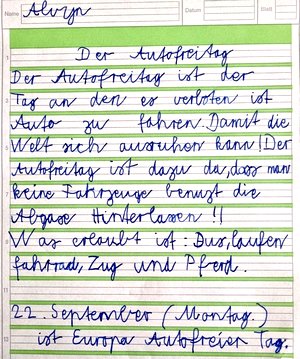 Name Alvyn Datum Blatt
Der Autofreitag
Der Autofreitag ist der
Tag an den es verboten ist
Auto zu fahren. Damit die
Welt sich ausruhen kann! Der
Autofreitag ist dazu da, dass man
keine Fahrzeuge benuzt die
Abgase Hinterlassen !!
Was erlaubt ist: Bus, laufen
fahrrad, Zug und Pferd.
22. September (Montag.)
ist Europa Autofreier Tag.